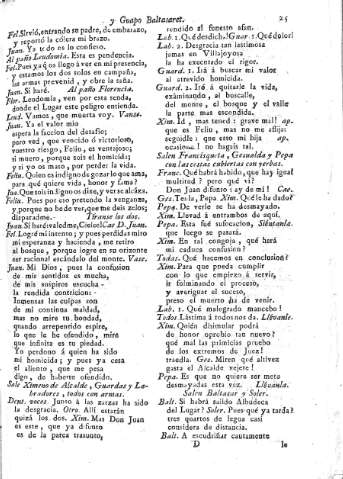 y Guapo Baltasaret.
25
Fel. Sirvió, entrando su padre, de embarazo,
y reportó la cólera mi brazo.
Juan. Ya tᴜ do es lo confieso.
Al paño Leudomia. Esta es pendencia.
Fel. Pues ya q̃ os llego à ver en mi presencia,
y estamos los dos solos en campaña,
de armas prevenid, y obre la saña.
Juan. Si haré. Al paño Florencia.
Flor. Leudomia, ven por esta senda,
donde el Lugar este peligro entienda.
Leud. Vamos, que muerta voy. Vanse.
Juan. Ya el valor mio
espera la faccion del desafio;
pero ved, que vencido ó victorioso,
vuestro riesgo, Felio, es ventajoso;
si muero, porque sois el homicida;
y si yo os mato, por perder la vida.
Felix. Quien es indigno de gozar lo que ama,
para qué quiere vida, honor y fama?
Jua. Que solais si gustos dice, y ver se alcãza.
Felix. Pues por eso pretendo la venganza,
y porque no he de ver, que me deis zelos;
disparadme. Tiranse los dos.
Juan. Si haré: valedme, Cielos! Cae D. Juan.
Fel. Logré mi intento; y pues perdidas miro
mi esperanza y hacienda, me retiro
al bosque, porque logre en su oriente
ser racional escándalo del monte. Vase.
Juan. Mi Dios, pues la confusion
de mis sentidos es mucha,
de mis suspiros escucha
la rendida contricion:
Inmensas las culpas son
de mi continua maldad,
mas no mire tu bondad,
quando arrepentido espire,
lo que le he ofendido, mire
que infinita es tu piedad.
Yo perdono á quien ha sido
mi homicida; y pues ya cesa
el aliento, que me pesa
digo, de haberte ofendido.
Sale Ximeno de Alcalde, Guardas y Labradores,
todos con armas.
Dent. voces. Junto á las zarzas ha sido
la desgracia. Otro. Allí estarán
quizá los dos. Xim. Mas Don Juan
es este, que ya difunto
es de la parca trasunto,
rendido el funesto afan.
Lab. 1. Qué desdich! Guar. 1. Qué dolor!
Lab. 2. Desgracia tan lastimosa
jamas en Villajoyosa
la ha executado el rigor.
Guard. 1. Irá á buscar mi valor
al atrevido homicida.
Guard. 2. Iré á quitarle la vida,
exâminando, al buscalle,
del monte, el bosque y el valle
la parte mas escondida.
Xim. Id, mas tened: grave mal! ap.
que es Felio, mas no me aflija
segidle: que eso mi hija ap.
ocasione? no hagais tal.
Salen Francisqueta, Gesualda y Pepa
con las cestas cubiertas con yerbas.
Franc. Qué habrá habido, que hay igual
multitud? pero qué vi?
Don Juan difunto: ay de mi! Cae.
Ges. Tesla, Pepa. Xim. Qué le ha dado?
Pepa. De verle se ha desmayado.
Xim. Llevad á entrambos de aquí.
Pepa. Esta fué sufocacion, Siéntanla.
que luego se pasará.
Xim. En tal congoja, qué hará
mi caduca confusion?
Todos. Qué hacemos en conclusion?
Xim. Para que pueda cumplir
con lo que empiezo á servir,
ir fulminando el proceso,
y averiguar el suceso,
preso el muerto ha de venir.
Lab. 1. Qué malogrado mancebo!
Todos. Lástima á todos nos da. Llévanle.
Xim. Quién disimular podrá
de honor oprobio tan nuevo?
qué mal las primicias pruebo
de los extremos de Juez!
traedla. Ges. Miren qué altivez
gasta el Alcalde vejete!
Pepa. Es que no quiere ser moto
desmayadas esta vez. Llévanla.
Salen Baltasar y Soler.
Balt. Si habrá salido Albudeca
del Lugar? Soler. Pues qué ya tarda?
tres quartos de legua casi
considero de distancia.
Balt. A escudriñar cautamente
D
le